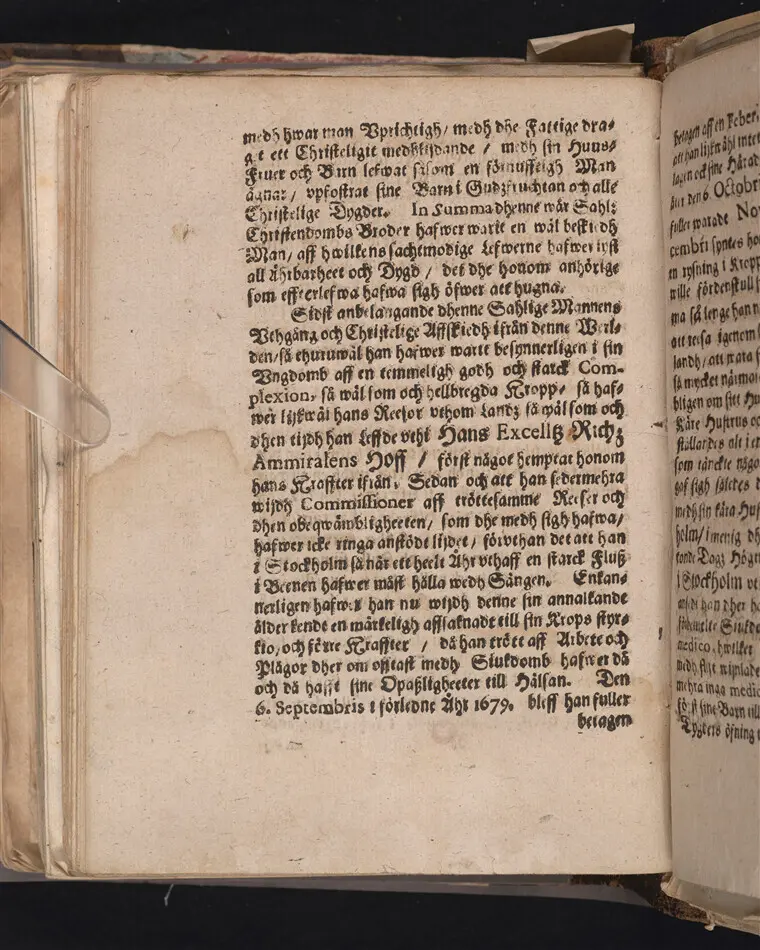 medh hwar man Vprichtigh / medh dhe Fattige dra-
get ett Christeligit medhlijdande / medh sin Huus-
Fruer och Barn lefwat såsom en förnufftigh Man
ägnar / vpfostrat sine Barn i Gudzfruchtan och alle
Christelige Dygder. In Summa dhenne wår Sahl:
Christendombs Broder hafwer warit en wäl beskedh
Man / aff hwilkens sachtmodige Lefwerne hafwer lyst
all Ährbarheet och Dygd / det dhe honom anhörige
som effterlefwa hafwa sigh öfwer att hugna.
Sidst anbelangande dhenne Sahlige Mannens
Vthgång och Christelige Affskiedh ifrån denne Werl-
den / så ehuruwäl han hafwer warit besynnerligen i sin
Vngdomb aff en temmeligh godh och starck Com-
plexion, så wäl som och hellbregda Kropp / så haf-
wer lijkwäl hans Reesor vthom Landz så wäl som och
dhen tijdh han lefde vthi Hans Excelltz Richz
Ammiralens Hoff / först något hemptat honom
hans Kraffter ifrån. Sedan och att han sedermehra
wijdh Commissioner aff tröttesamme Reeser och
dhen obeqwämbligheeten / som dhe medh sigh hafwa /
hafwer icke ringa anstödt lijdet / förvthan det att han
i Stockholm så när ett heelt Åhr vthaff en starck Fluß
i Beenen hafwer måst hålla wedh Sängen. Enkan-
nerligen hafwer han nu wijdh denne sin annalkande
ålder kendt en märkeligh afflaknadt till sin Krops styr-
kio, och förre Kraffter / då han trött aff Arbete och
Plågor dher om offtast medh Siukdomb hafwer då
och då hafft sine Opaßligheeter till Hälsan. Den
6. Septembris i förledne Åhr 1679. bleff han fuller
betagen
betagen aff en Feber
den 6. Octobri
fuller warade
cembri syntes
en rysning i Kropp
wille fördenskull
ma så lenge han
att reesa igenom
landh / att
så mycket
bligen om sitt
Käre Hustrus
som tänckte någo
medh sin kära Hus
holm / imenig
i Stockholm
medico, hwilket
mehra inga medic
först sine Barn till
Dygders öfning